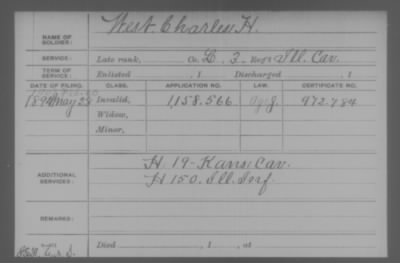 NAME OF SOLDIER: West Charles H.
SERVICE: Late rank, Co. L. 3. Reg't Ill. Cav.
TERM OF SERVICE: Enlisted , 1 Discharged , 1
DATE OF FILING. CLASS. APPLICATION NO. LAW. CERTIFICATE NO.
May 23 Invalid, 1,158.566 972.784
Widow,
Minor,
ADDITIONAL SERVICES: H 19-Kans. Cav.
H 150. Ill. Inf
REMARKS:
Died , 1 , at